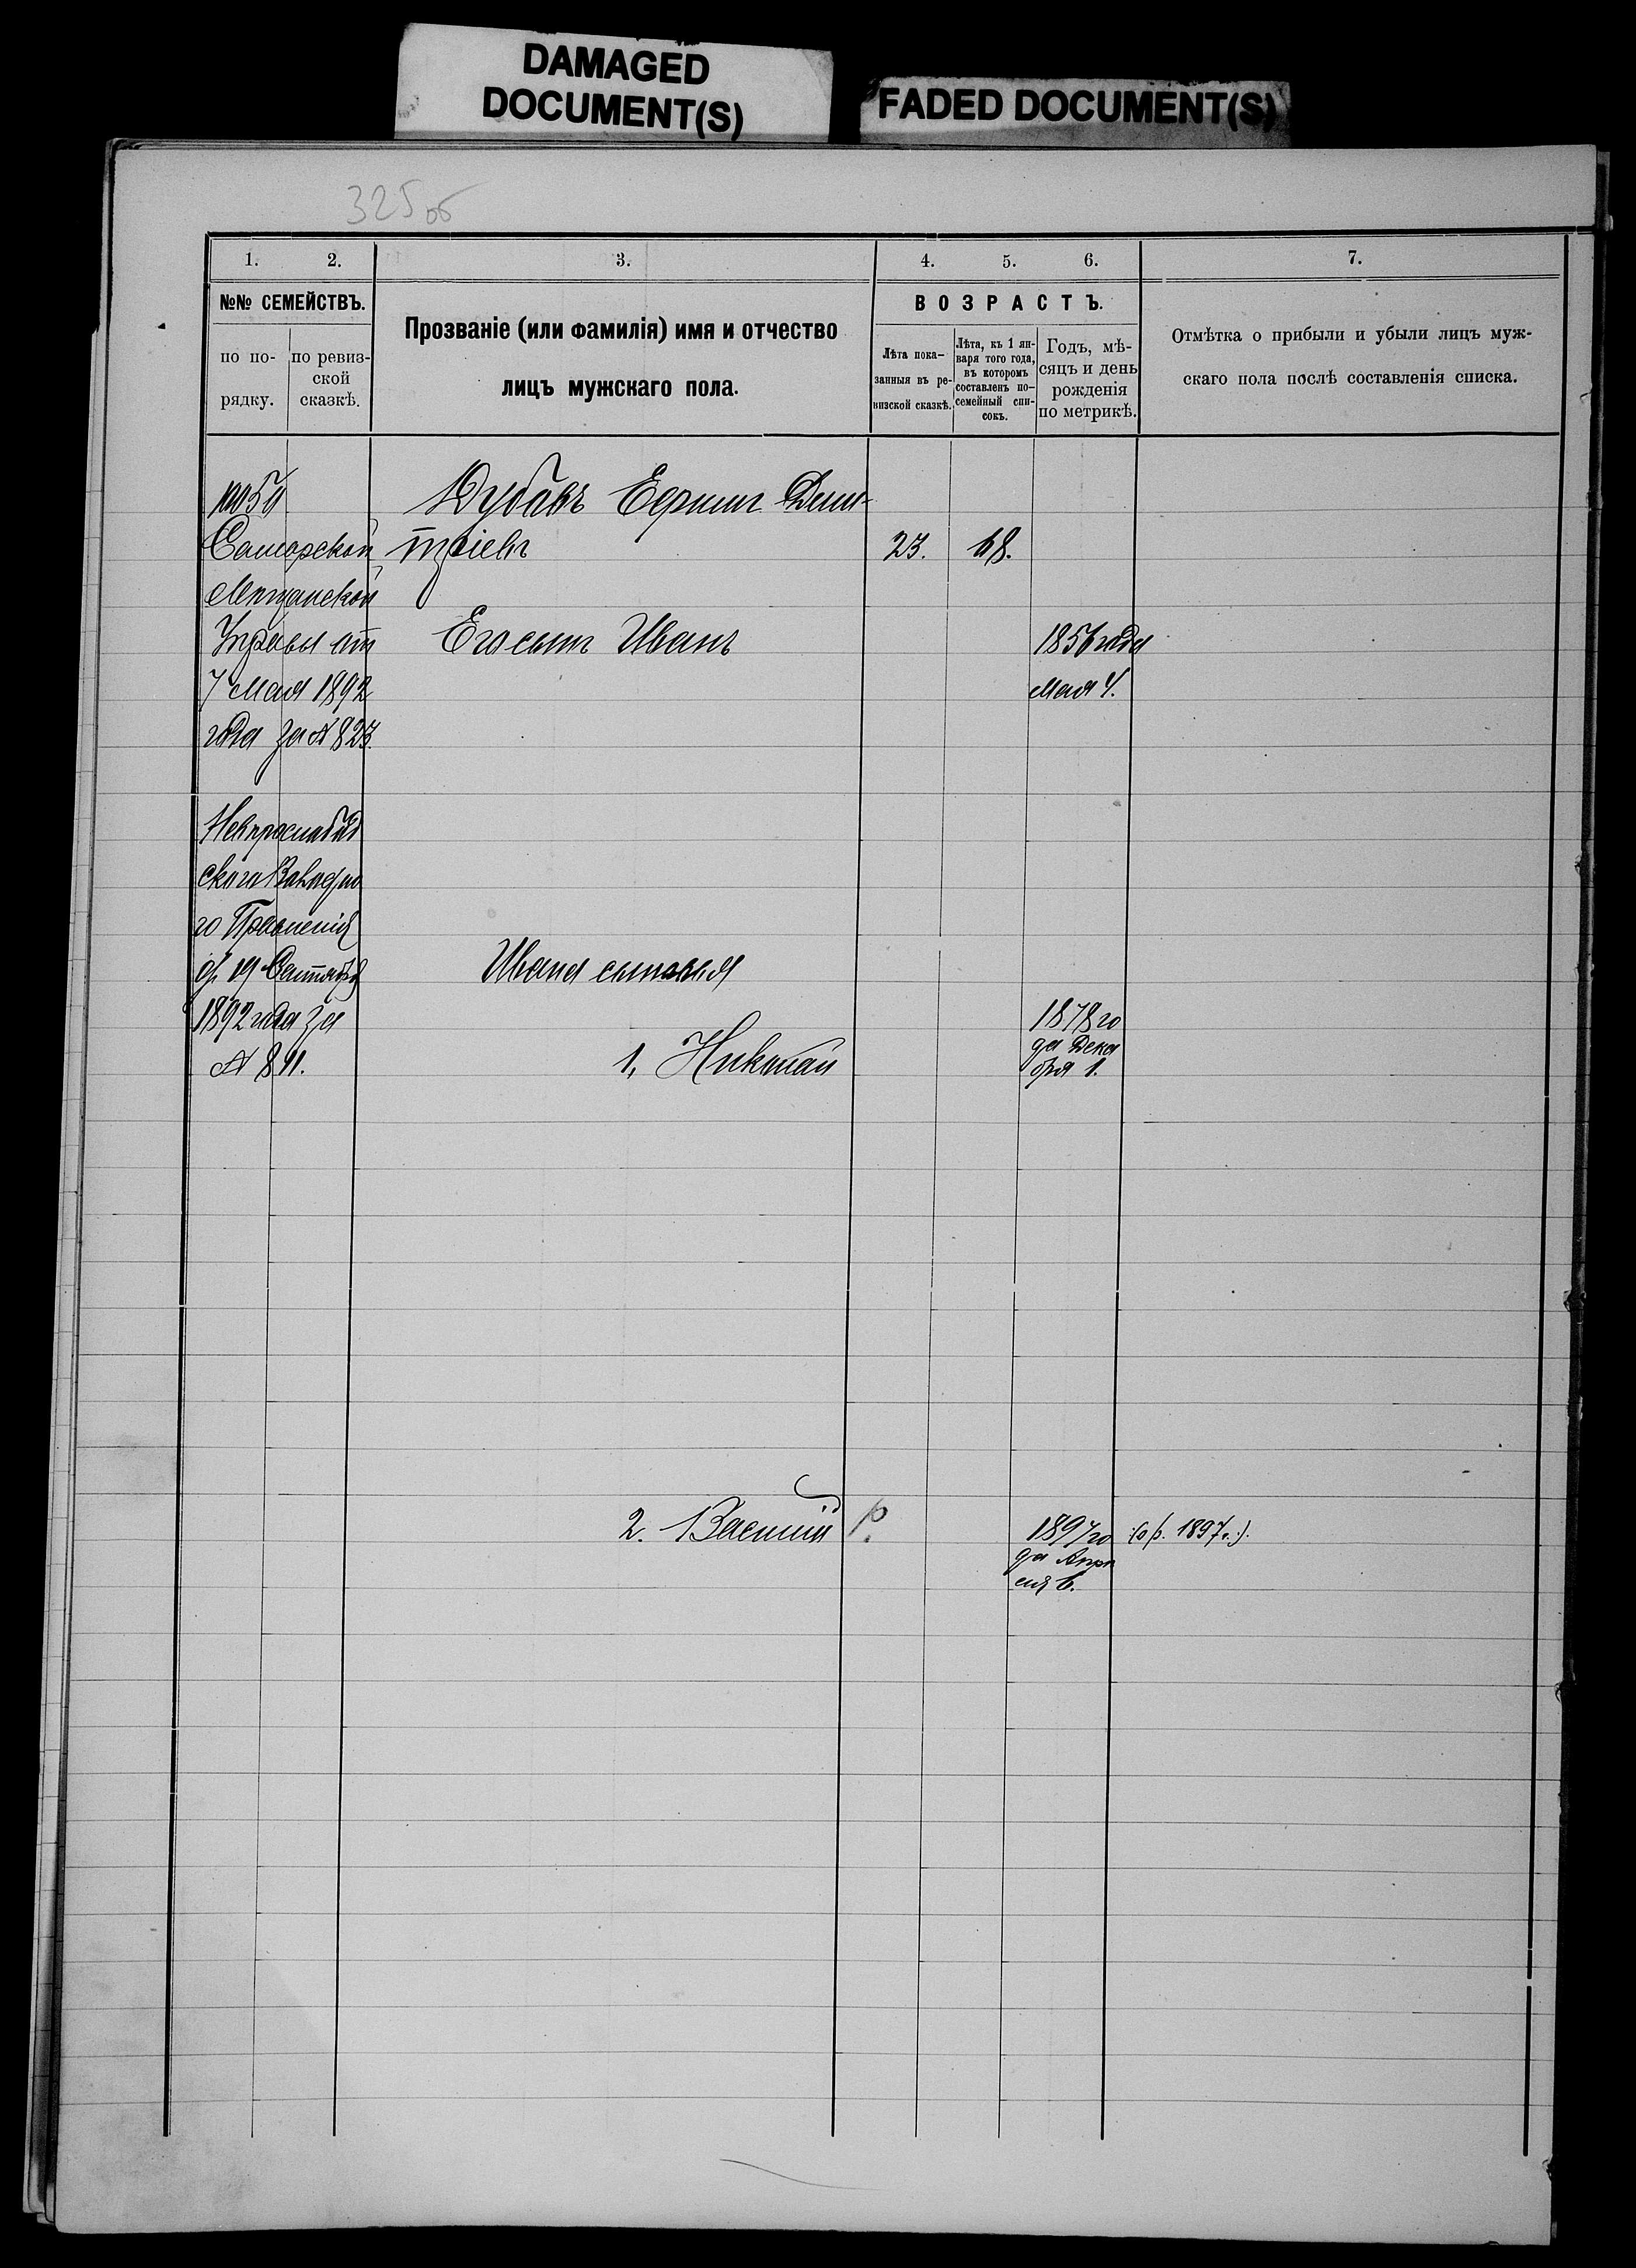 DAMAGED
DOCUMENT(S)
FADED DOCUMENT(S)
325 об
1.
2.
3.
4.
5.
6.
7.
№№ СЕМЕЙСТВЪ.
по по-
рядку.
по ревиз-
ской
сказкѣ.
Прозваніе (или фамилія) имя и отчество
лицъ мужскаго пола.
ВОЗРАСТЪ.
Лѣта пока-
занныя въ ре-
визской сказкѣ.
Лѣта, къ 1 ян-
варя того года,
въ которомъ
составленъ по-
семейный спи-
сокъ.
Годъ, мѣ-
сяцъ и день
рожденія
по метрикѣ.
Отмѣтка о прибыли и убыли лицъ муж-
скаго пола послѣ составленія списка.
Ефимъ Дми-
тріевъ
23.
Самарской
Мѣщанской
Управы от
7 Мая 1892
года за № 823.
Его сынъ Иванъ
1856 года
Мая 4.
го Правленія
от 19 Сентября
1892 года за
№ 811.
Ивана сыновья
1, Николай
1878 го
да Дека
бря 1.
2. Василий
р.
1897 го
да Апрѣ
ля 6.
:(о р. 1897 г.:).